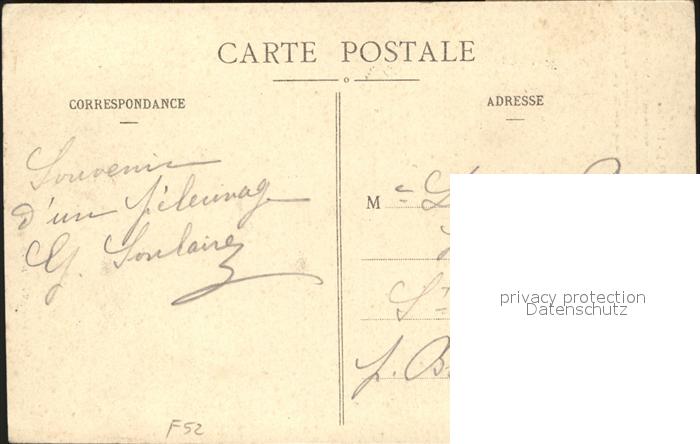 CARTE POSTALE
CORRESPONDANCE
ADRESSE
Souvenir
d'un pèlerinage
G. Soulaire
M
privacy protection
Datenschutz
F52